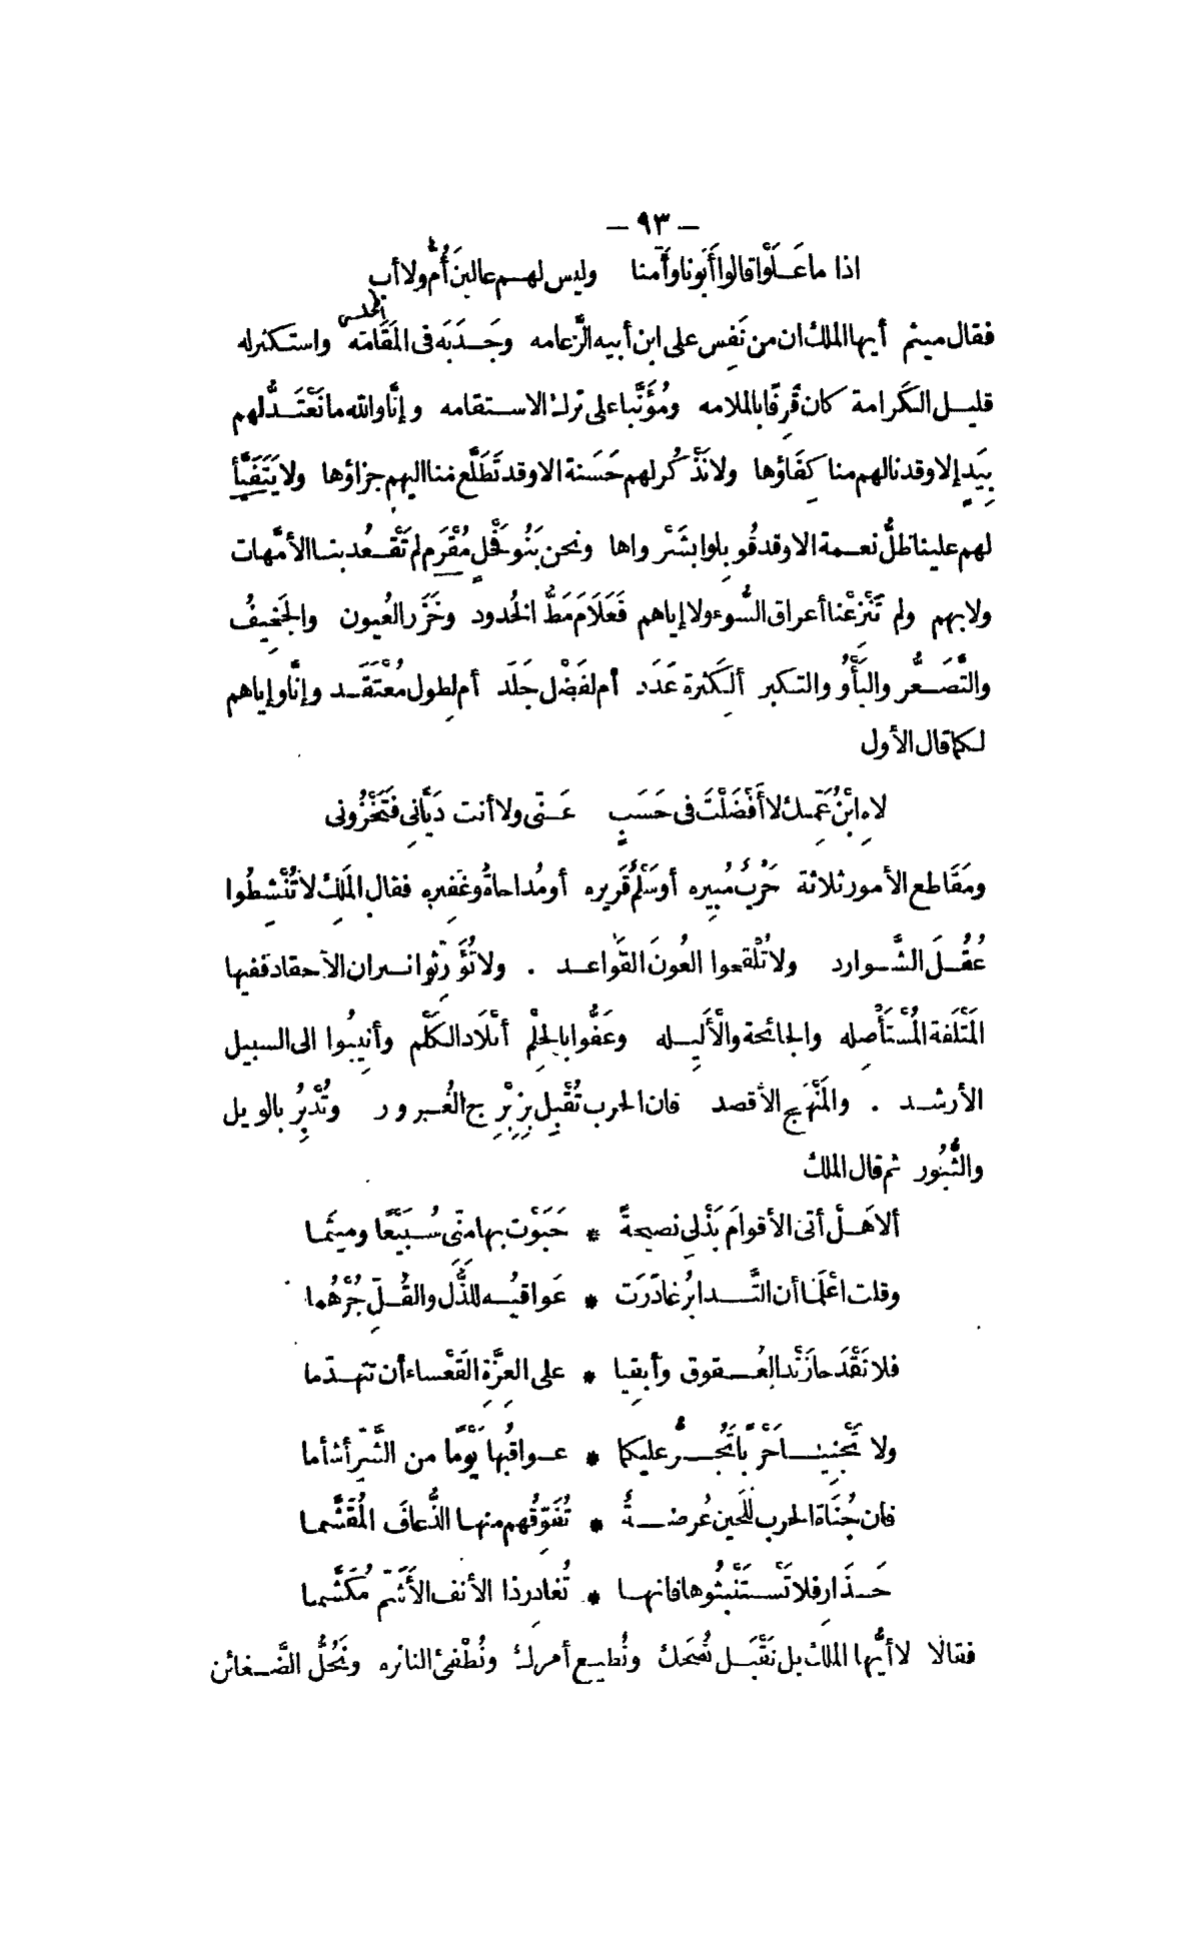 — ٩٣ —
اذا ما عَلَوْا قالوا أَبُونا وأُمّنا وليس لهم عالينَ أُمٌّ ولا أب
المجلس
فقال ميثم أيها الملك ان من نَفِس على ابن أبيه الزَّعامه وجَدَبَه فى المَقَامته واستكثر له
قليل الكَرامة كان قَرِفًا بالملامه ومُؤَنَّبا على ترك الاستقامه وإنَّا والله ما نَعْتَدُّ لهم
بِيَدٍ إلا وقد نالهم منا كِفَاؤها ولا نَذْكُر لهم حَسَنة الا وقد تَطَلَّع منا اليهم جزاؤها ولا يَتَفَيَّأ
لهم علينا ظلُّ نعمة الا وقد قُوبِلوا بشَرْواها ونحن بَنُو فَحْلٍ مُقْرَم لم تَقْعُد بنا الأمَّهات
ولا بهم ولم تَنْزِعْنا أعراق السُّوء ولا إياهم فَعَلَامَ مَطُّ الخُدود وخَزَر العُيون والجَخِيفُ
والتَّصَعُّر والبَأْوُ والتكبر ألِكَثرة عَدَد أم لفَضْل جَلَد أم لِطول مُعْتَقَد وإنَّا وإياهم
لكما قال الأول
لاهِ ابْنُ عَمِّك لا أَفْضَلْتَ فى حَسَبٍ عَنّى ولا أنت دَيَّانِى فتَخْزُونى
ومَقَاطع الأمور ثلاثة حَرْبٌ مُبِيره أو سَلْمٌ قَرِيره أو مُداحاةٌ وغَفِيره فقال المَلِك لا تُنْشِطُوا
عُقُلَ الشَّوارد ولا تُلْقحوا العُونَ القَوَاعد . ولا تُؤَرِّثوا نيران الأحقاد ففيها
المَتْلَفة المُسْتَأْصِله والجائحة والأَلِيله وعَفُّوا بالحِلْمِ أبْلَاد الكَلْم وأنِيبُوا الى السبيل
الأرشد . والمَنْهَج الأقصد فان الحرب تُقْبِل بِزِبْرِج الغُرور وتُدْبِرُ بالويل
والثُّبُور ثم قال الملك
ألا هَلْ أتى الأقوامَ بَذْلِى نصيحةً * حَبَوْت بها مِنّى سُبَيْعًا وميثَما
وقلت اعْلَمَا أن التَّدابُر غادَرَت * عَواقبُه للذُّلّ والقُلِّ جُرْهُما
فلا تَقْدَحا زَنْد العُقوق وأَبقِيا * على العِزَّةِ القَعْساء أن تتهدّما
ولا تَجْنِيَا حَرْبًا تَجُرُّ عليكما * عواقبُها يَوْمًا من الشَّرِّ أشأما
فان جُنَاة الحرب للحَين عُرضةٌ * تُفَوِّقُهم منها الذُّعافَ المُقَشَّما
حَذَارِ فلا تَسْتَنْبِثُوها فانها * تُغادِر ذا الأنف الأَشَمّ مُكَشَّما
فقالا لا أيُّها الملك بل نَقْبَل نُصْحَك ونُطيع أمرك ونُطْفئ النائره ونَحُلُّ الضَّغائن